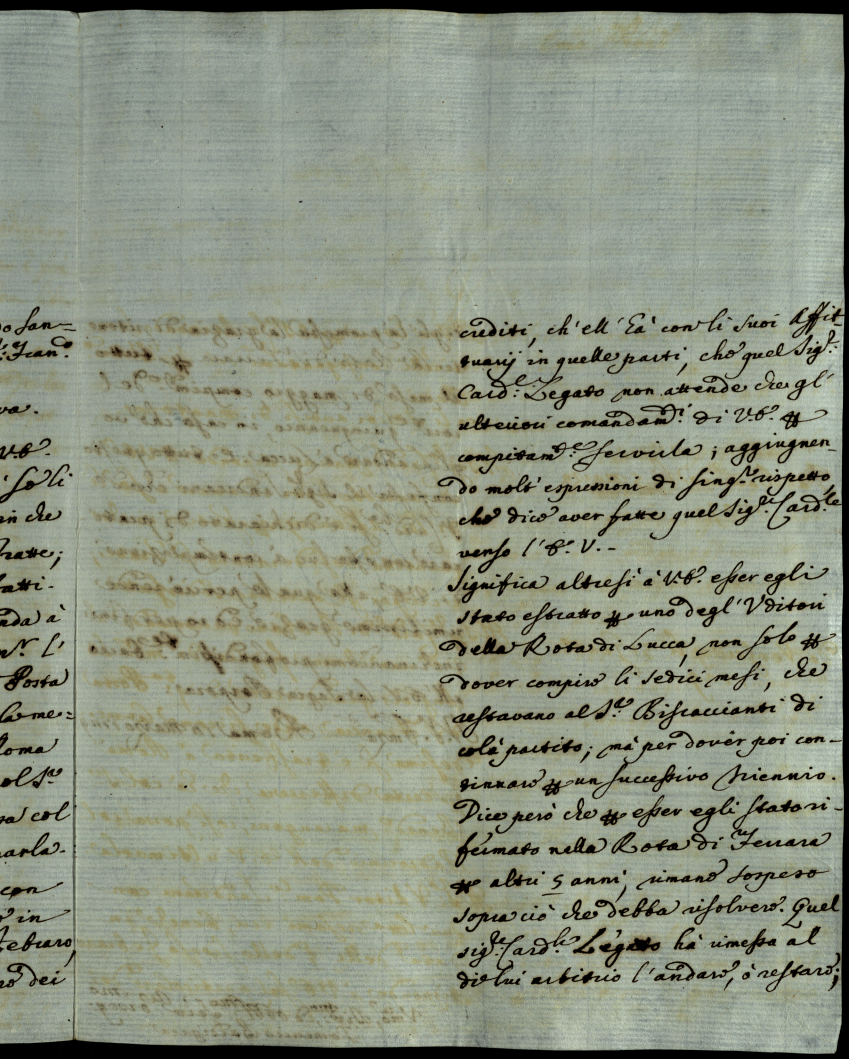 o San=
: Fran.º
va.
V.E.
i se li
in che
tratte;
fatti-
nda à
l'
Posta
la me=
Roma
ol Sr.
ra col
parla-
con
in
Febraro,
dei
crediti, ch'ell' hà con li suoi Affit-
tuarij in quelle parti, che quel Sig.r
Card.l Legato non attende che gl'
ulteriori comandam.ti di V.E. ꝑ
compitam.te servirla; aggiugnen-
do molt' espressioni di sing.r rispetto,
che dice aver fatte quel Sig.re Card.le
verso l'E.V.-
Significa altresì à V.E. esser egli
stato estratto ꝑ uno degl' Uditori
della Rota di Lucca, non solo ꝑ
dover compire li sedici mesi, che
restavano al Sr. Biscaccianti di
colà partito; mà per dovèr poi con-
tinuare ꝑ un successivo triennio.
Dice però che ꝑ esser egli stato ri-
fermato nella Rota di Ferrara
ꝑ altri 5 anni, rimane sospeso
sopra ciò che debba risolvere. Quel
sig.re Card.le Legato hà rimessa al
di lui arbitrio l'andare, ò restare;